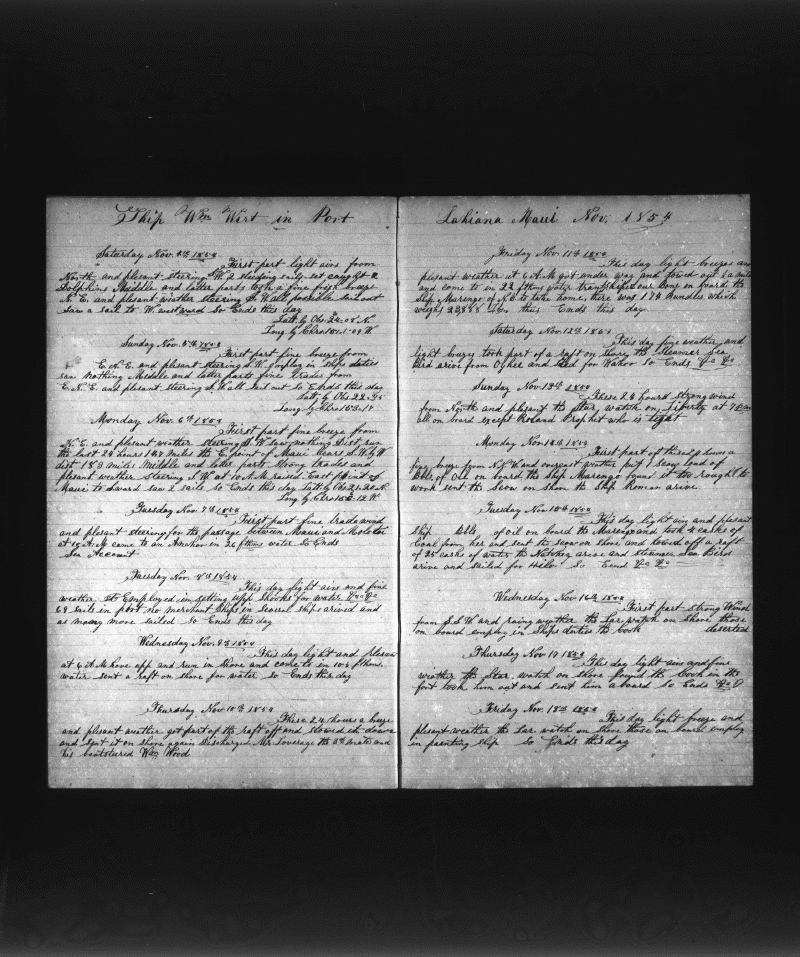 Ship Wm Wirt in Port
Saturday Nov. 4th 1854
First part light airs from
North and plesant steering S.W. 2 studding sails set caught 2
Dolphins Middle and latter parts took a fine fresh breeze
N.E. and plesant weather steering S.W. all possible sail out
saw a sail to W. eastward So Ends this day
Latt. by Obs. 24-08 N
Long. by Chro 151-09 W
Sunday Nov. 5th 1854
First part fine breeze from
E.N.E. and plesant steering S.W. employ in Ships duties
saw nothing Middle and latter parts fine trades from
E.N.E. and plesant steering S.W. all sail out So Ends this day
Latt by Obs 22-35
Long by Chro 153-17
Monday Nov. 6th 1854
First part fine breeze from
N.E. and plesant wether steering S.W. saw nothing Dist. run
the last 24 hours 167 miles the E. point of Maui bears S.W. by W
dist 183 miles Middle and later parts strong trades and
plesant weather steering S.W. at 10 A.M. raised East point of
Maui to ward saw 2 sails So Ends this day Latt by Obs 21-20 N
Long by Chro 155-12 W.
Tuesday Nov. 7th 1854
First part fine trade wind
and plesant steering for the passage between Maui and Molotoi
at 10 A.M. came to an Anchor in 26 fthms water So Ends
Sea Account
Tuesday Nov. 8th 1854
This day light airs and fine
weather. Employed in setting upp Shooks for water
68 sails in port no merchant Ships in several ships arived and
as many more sailed So Ends this day
Wednesday Nov. 9th 1854
This day light and plesant
at 6 A.M. hove upp and run in shore and come to in 10½ fthms
water sent a raft on shore for water So Ends this day
Thursday Nov. 10th 1854
These 24 hours a breeze
and plesant weather got part of the raft off and stowed it down
and sent it on shore again Discharged Mr. Loverage the 4th mate and
his boatsteered Wm Wood
Lahiana Maui Nov. 1854
Friday Nov. 11th 1854
This day light breezes and
plesant weather at 6 A.M. got under way and towed out
and come to in 22 fthms water transhiped our bone on board the
Ship Marengo of N.B to take home, there was 174 bundles which
weighs lbs. thus Ends this day
Saturday Nov. 12th 1854
This day fine weather and
light took part of a raft on Shore the Steamer Sea
Bird arive from Oyhee and Saild for Wahoo So Ends
Sunday Nov. 13th 1854
These 24 hours strong wind
from North and plesant the Star. watch on liberty at
all on board except Roland Prophet who is tight
Monday Nov. 14th 1854
First part of these 24 hours a
fine breeze from N.N.W. and overcast weather put 1 scow load of
Bbls of Oil on board the Ship Marengo found it too rought to
work sent the Scow on shore the Ship Roman arive.
Tuesday Nov. 15th 1854
This day light airs and plesant
Ship Bbls. of oil on board the Marengo and took 4 casks of
Coal from her and sent the scow on shore and towed off a raft
of 25 casks of water the Natchez arive and steamer Sea Bird
arive and sailed for Hilo So Ends
Wednesday Nov 16th 1854
First part Strong Wind
from S.S.W. and raining weather the Lar. watch on shore those
on board employ in Ships duties the Cook deserted
Thursday Nov. 17 1854
This day light airs and fine
weather the Star. watch on shore found the Cook in the
fort took him out and sent him a board So Ends
Friday Nov. 18th 1854
This day light breeze and
plesant weather the Lar. watch on Shore those on board employ
in painting ship So Ends this day